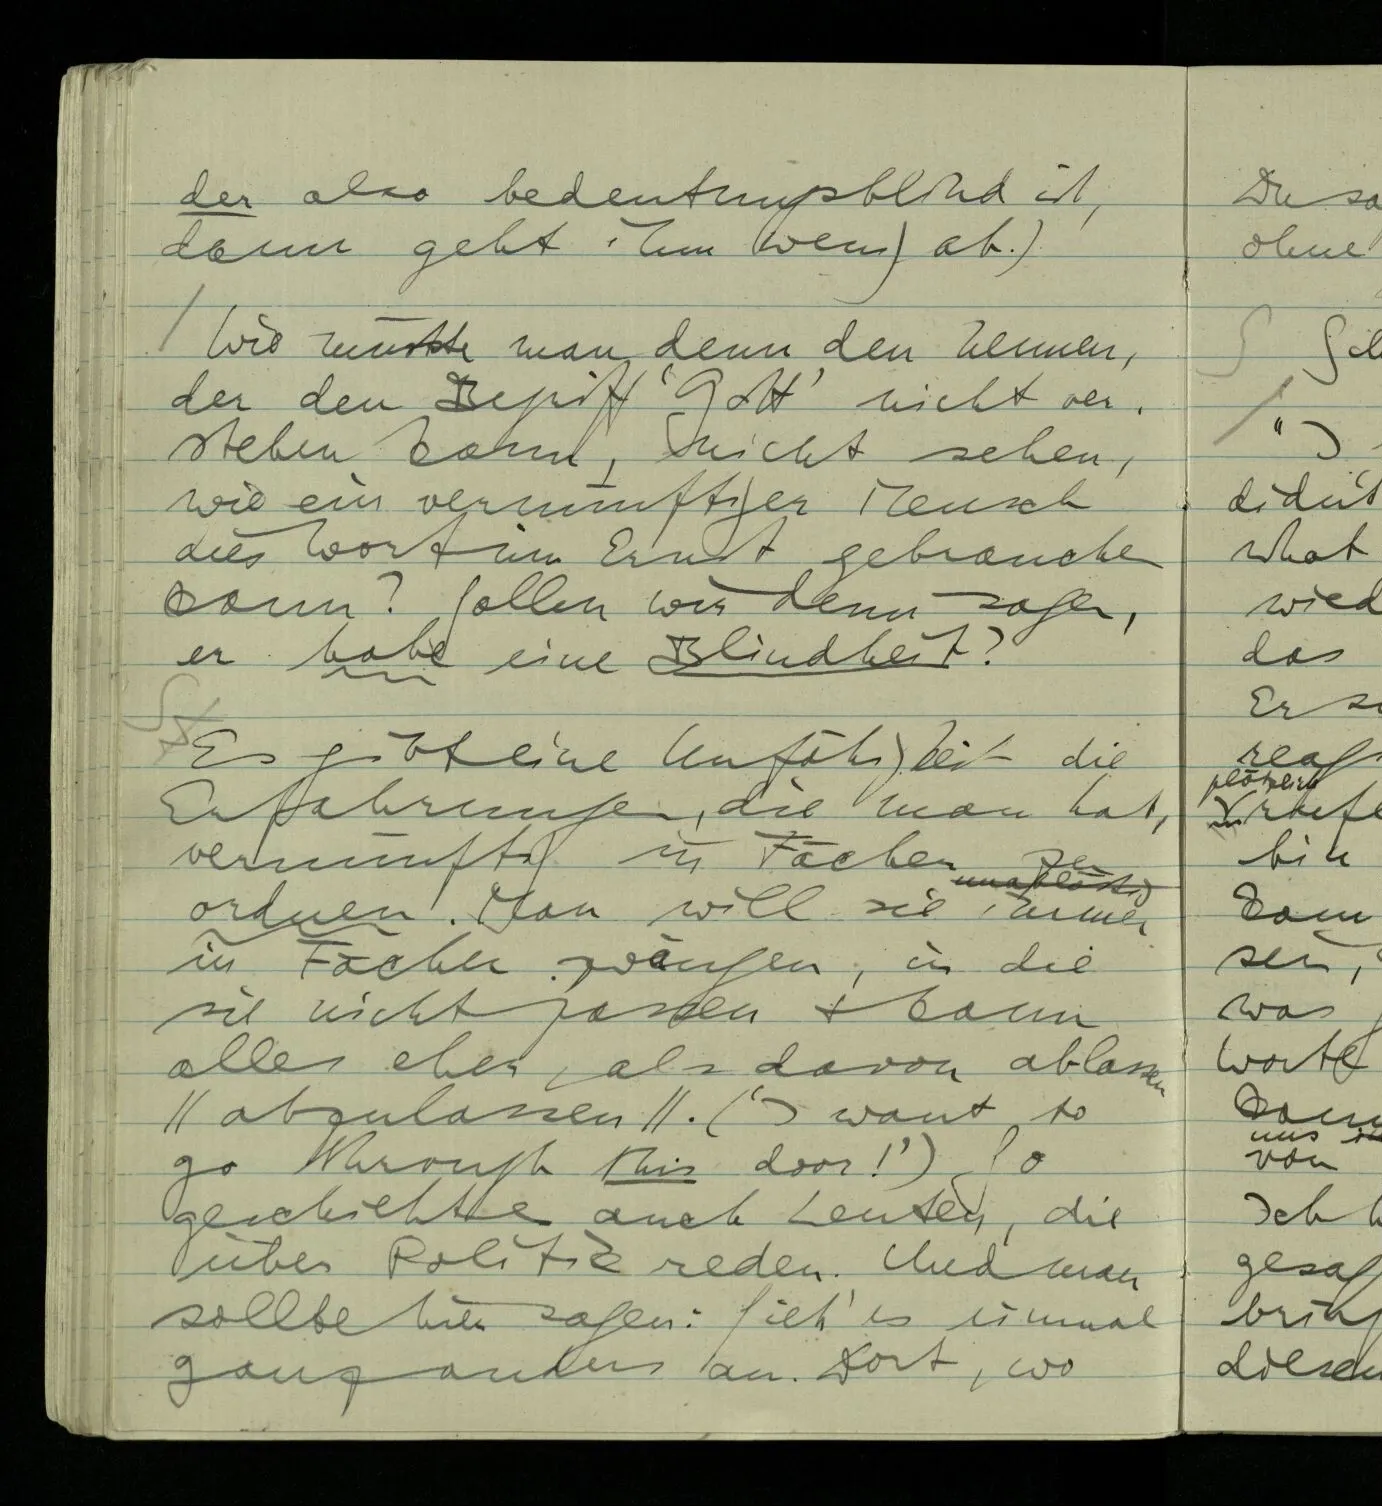 der also bedeutungsblind ist,
dann geht ihm wenig ab.)
/ Wie müßte man denn den nennen,
der den Begriff ‘Gott’ nicht ver-
stehen kann, nicht sehen,
wie ein vernünftiger Mensch
dies Wort im Ernst gebrauchen
kann? Sollen wir denn sagen,
er habe eine Blindheit?
Es gibt eine Unfähigkeit die
Erfahrungen, die man hat,
vernünftig in Fächer zu
unablässig
ordnen. Man will sie immer
in Fächer zwängen, in die
sie nicht passen & kann
alles eher, als davon ablassen
// abzulassen //. (‘I want to
go through this door!’) So
geschieht es auch Leuten, die
über Politik reden. Und man
sollte hier sagen: Sieh' es einmal
ganz anders an. Dort, wo
Du
ohne
/ “I
didn't
what
das
Er
plötzlich
bin
kann
was
Worte
uns
von
Ich
diesen